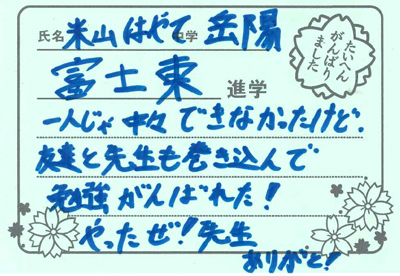 氏名 米山 はやて 中学 岳陽
たいへん
がんばり
ました
富士東 進学
一人じゃ中々できなかったけど、
友達と先生も巻き込んで
勉強がんばれた!
やったぜ!先生
ありがと!